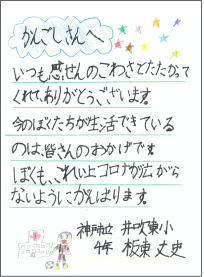 かんごしさんへ
いつも感せんのこわさとたたかって
くれて、ありがとうございます。
今のぼくたちが生活できている
のは、皆さんのおかげです
ぼくも、これい上コロナが広がら
ないようにがんばります。
神戸市立 井吹東小
4年 板東 丈史